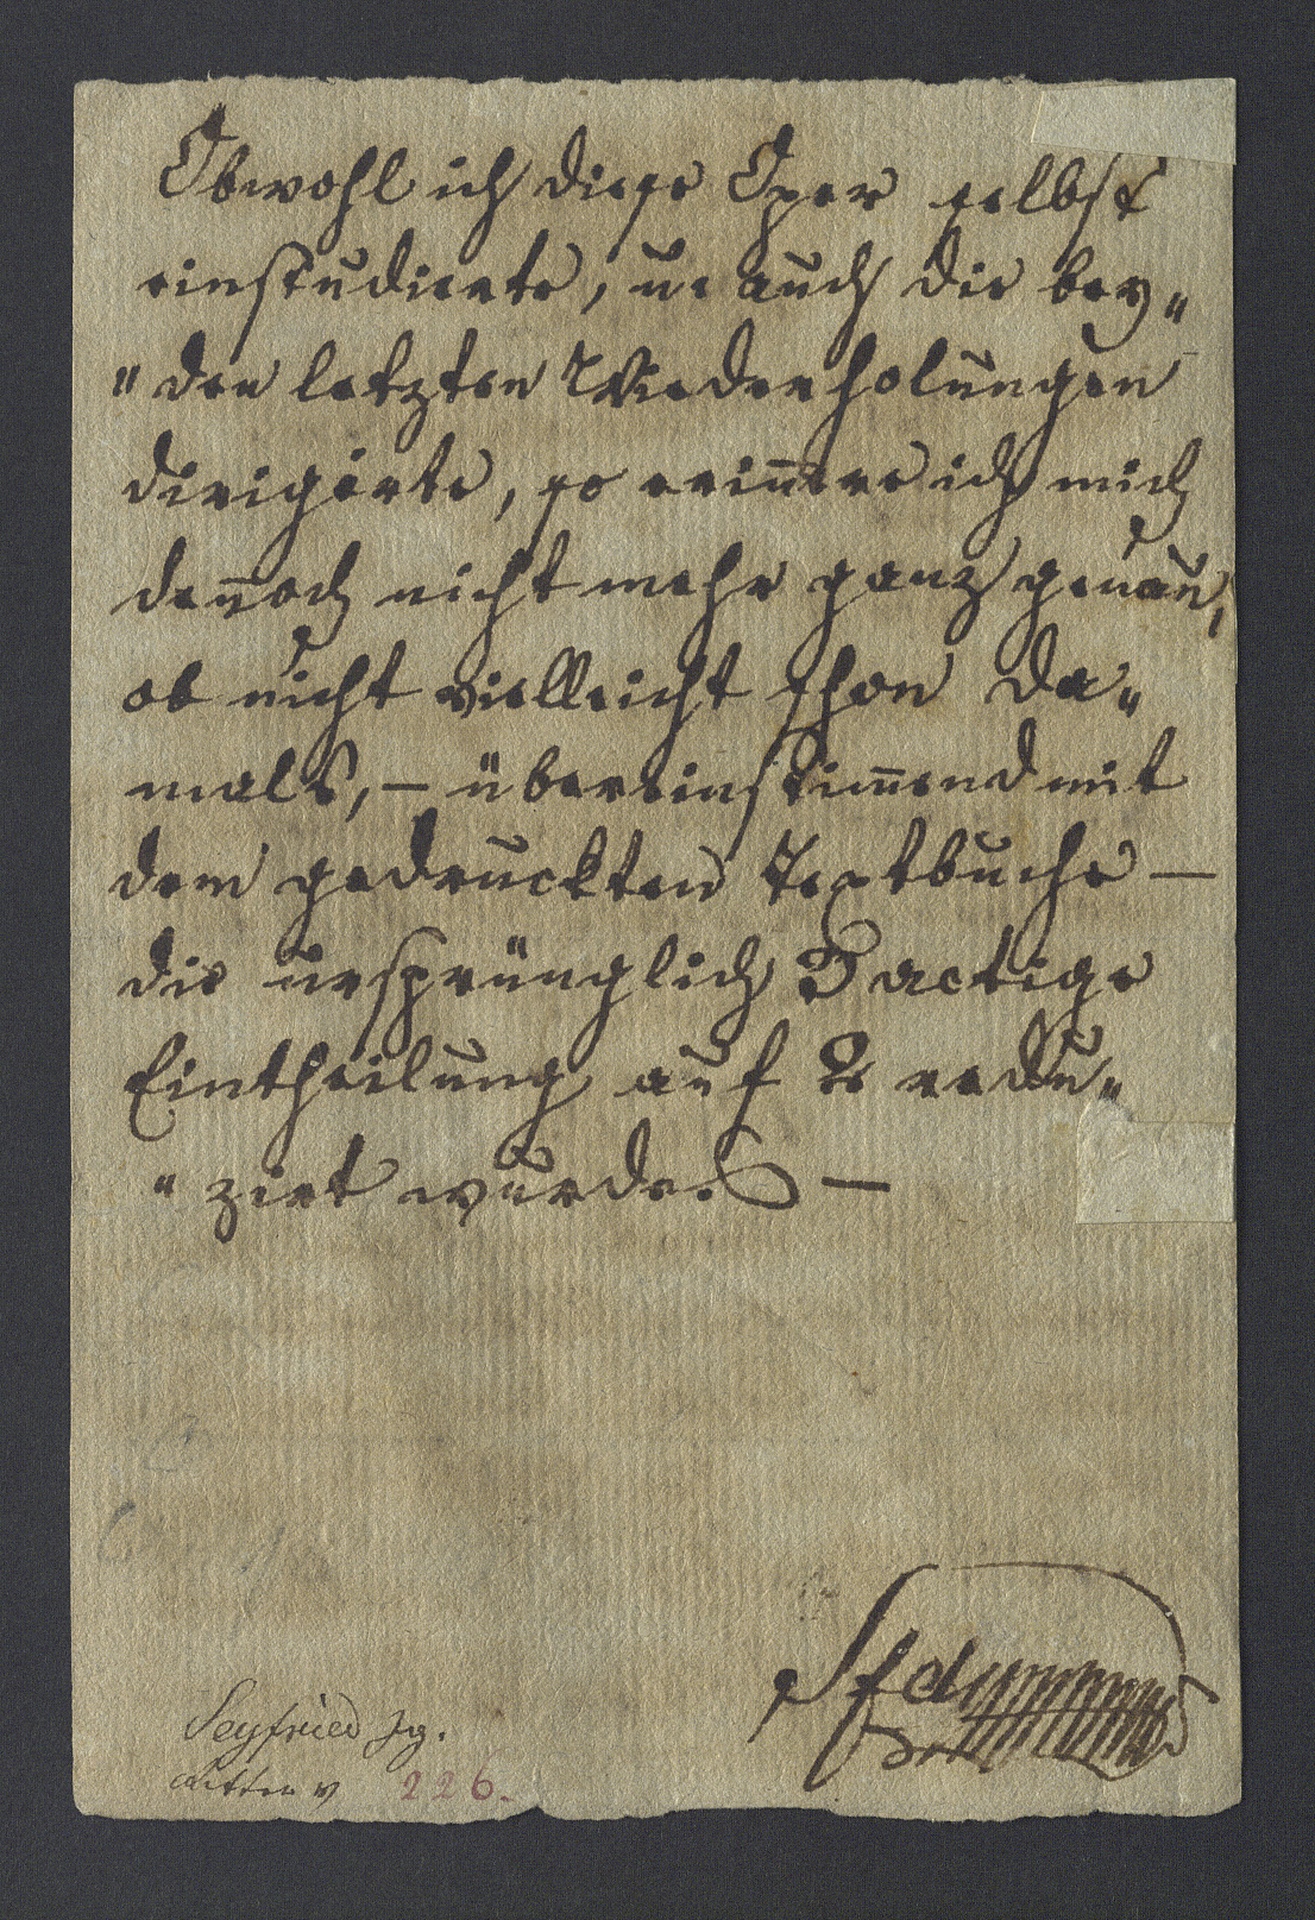 Obwohl ich diese Oper selbst
einstudierte, u. auch die bey„
„den letzten Wiederholungen
dirigirte, so erin̄ere ich mich
den̄och nicht mehr ganz genau,
ob nicht vielleicht schon da„
mals, – übereinstim̄end mit
dem gedruckten Textbuche —
die ursprünglich 3 actige
Eintheilung auf 2 redu„
„zirt wurde. —
Seyfried Ig.
Ritter v 226.